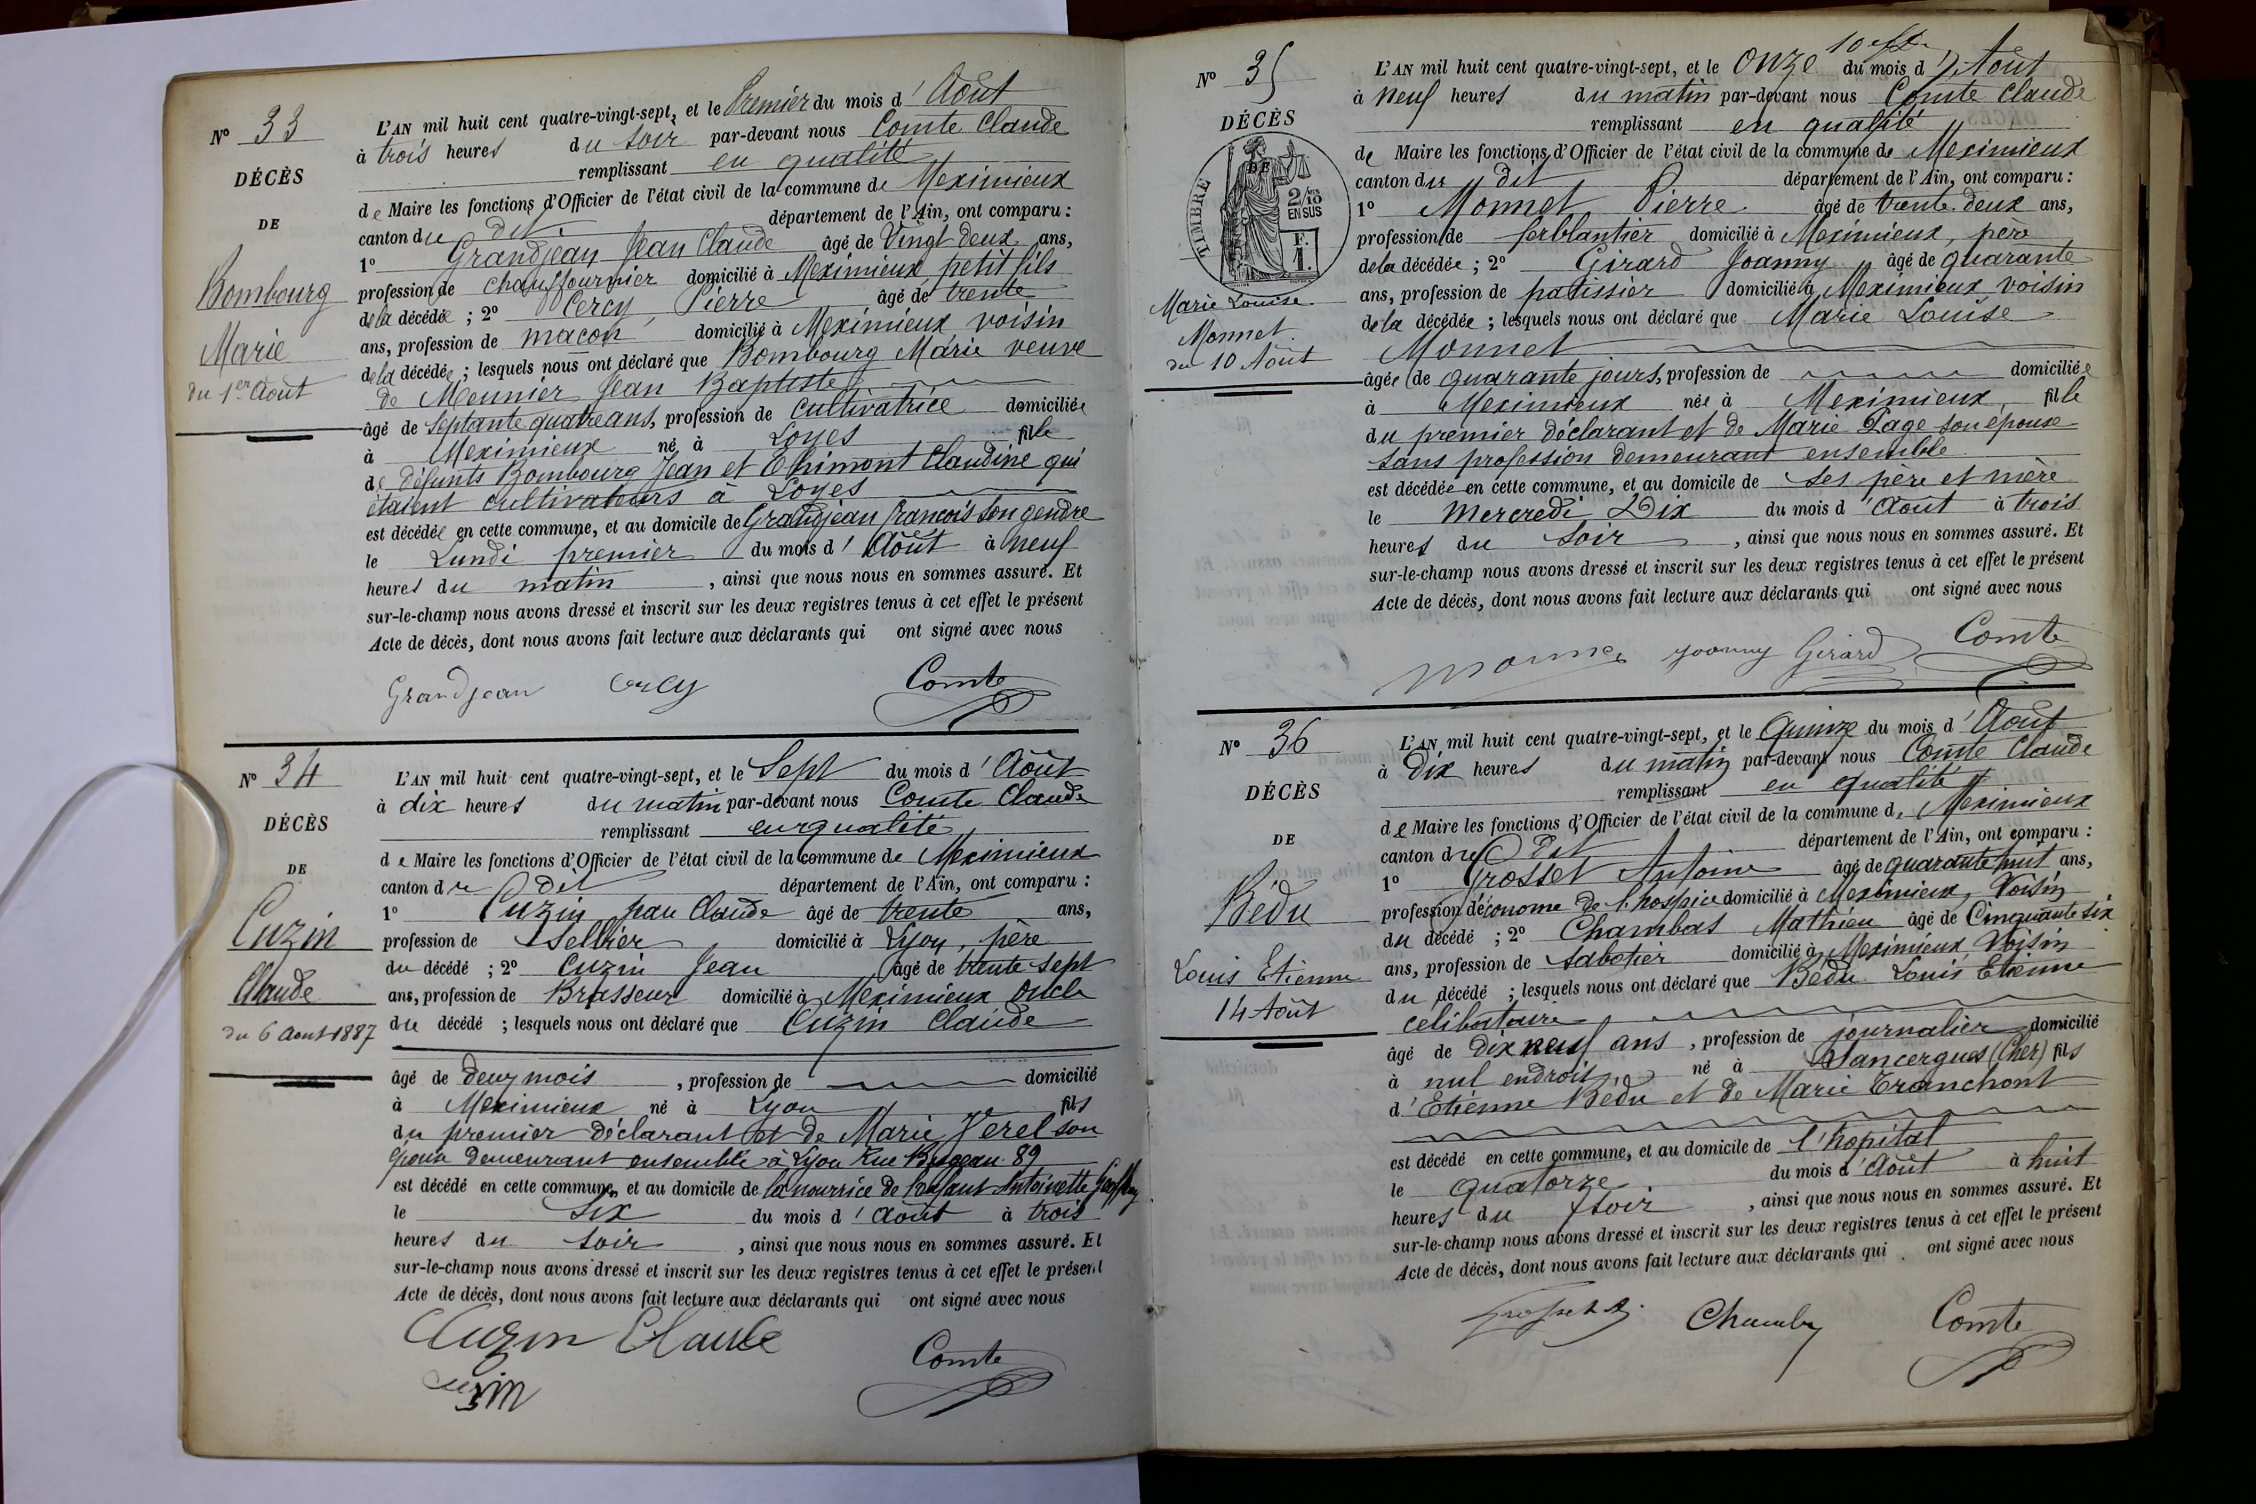 N° 33
DÉCÈS
DE
Bombourg
Marie
du 1er Août
L'AN mil huit cent quatre-vingt-sept, et le Premier du mois d'Août
à trois heures du soir par-devant nous Comte Claude
remplissant en qualité
de Maire les fonctions d'Officier de l'état civil de la commune de Meximieux
canton du dit département de l'Ain, ont comparu :
1° Grandjean Jean Claude âgé de Vingt deux ans,
profession de chauffournier domicilié à Meximieux petit fils
de la décédée ; 2° Cercy Pierre âgé de trente
ans, profession de maçon domicilié à Meximieux voisin
de la décédée ; lesquels nous ont déclaré que Bombourg Marie veuve
de Meunier Jean Baptiste
âgé de septante quatre ans, profession de cultivatrice domiciliée
à Meximieux né à Loyes fille
de défunts Bombourg Jean et Chimont Claudine qui
étaient cultivateurs à Loyes
est décédée en cette commune, et au domicile de Grandjean françois son gendre
le Lundi premier du mois d'Août à neuf
heures du matin , ainsi que nous nous en sommes assuré. Et
sur-le-champ nous avons dressé et inscrit sur les deux registres tenus à cet effet le présent
Acte de décès, dont nous avons fait lecture aux déclarants qui ont signé avec nous
Grandjean Cercy Comte
N° 34
DÉCÈS
DE
Cuzin
Claude
du 6 Aout 1887
L'AN mil huit cent quatre-vingt-sept, et le Sept du mois d'Août
à dix heures du matin par-devant nous Comte Claude
remplissant en qualité
de Maire les fonctions d'Officier de l'état civil de la commune de Meximieux
canton du dit département de l'Ain, ont comparu :
1° Cuzin Jean Claude âgé de trente ans,
profession de Sellier domicilié à Lyon, père
du décédé ; 2° Cuzin Jean âgé de trente sept
ans, profession de Brasseur domicilié à Meximieux oncle
du décédé ; lesquels nous ont déclaré que Cuzin Claude
âgé de deux mois , profession de domicilié
à Meximieux né à Lyon fils
du premier déclarant et de Marie Verel son
épouse demeurant ensemble à Lyon Rue Bugeau 89
est décédé en cette commune, et au domicile de la nourrice de l'enfant Antoinette
le six du mois d'Août à trois
heures du soir , ainsi que nous nous en sommes assuré. Et
sur-le-champ nous avons dressé et inscrit sur les deux registres tenus à cet effet le présent
Acte de décès, dont nous avons fait lecture aux déclarants qui ont signé avec nous
Cuzin Claude
Cuzin
Comte
N° 35
DÉCÈS
DE
TIMBRE
2/10 EN SUS
F. 1.
Marie Louise
Monnet
du 10 Août
L'AN mil huit cent quatre-vingt-sept, et le onze du mois d'Août
à neuf heures du matin par-devant nous Comte Claude
remplissant en qualité
de Maire les fonctions d'Officier de l'état civil de la commune de Meximieux
canton du dit département de l'Ain, ont comparu :
1° Monnet Pierre âgé de trente deux ans,
profession de ferblantier domicilié à Meximieux, père
de la décédée ; 2° Girard Joanny âgé de quarante
ans, profession de patissier domicilié à Meximieux voisin
de la décédée ; lesquels nous ont déclaré que Marie Louise
Monnet
âgée de quarante jours, profession de domiciliée
à Meximieux née à Meximieux, fille
du premier déclarant et de Marie Page son épouse
sans profession demeurant ensemble
est décédée en cette commune, et au domicile de ses père et mère
le mercredi Dix du mois d'Août à trois
heures du soir , ainsi que nous nous en sommes assuré. Et
sur-le-champ nous avons dressé et inscrit sur les deux registres tenus à cet effet le présent
Acte de décès, dont nous avons fait lecture aux déclarants qui ont signé avec nous
Monnet Joanny Girard Comte
N° 36
DÉCÈS
DE
Bédu
Louis Etienne
14 Août
L'AN mil huit cent quatre-vingt-sept, et le Quinze du mois d'Août
à Dix heures du matin par-devant nous Comte Claude
remplissant en qualité
de Maire les fonctions d'Officier de l'état civil de la commune de Meximieux
canton du dit département de l'Ain, ont comparu :
1° Grosset Antoine âgé de quarante huit ans,
profession d'économe de l'hospice domicilié à Meximieux, Voisin
du décédé ; 2° Chambas Mathieu âgé de Cinquante six
ans, profession de sabotier domicilié à Meximieux Voisin
du décédé ; lesquels nous ont déclaré que Bédu Louis Etienne
célibataire
âgé de dix neuf ans , profession de journalier domicilié
à nul endroit né à Sancergues (Cher) fils
d'Etienne Bédu et de Marie Tranchont
est décédé en cette commune, et au domicile de l'hopital
le quatorze du mois d'Août à huit
heures du soir , ainsi que nous nous en sommes assuré. Et
sur-le-champ nous avons dressé et inscrit sur les deux registres tenus à cet effet le présent
Acte de décès, dont nous avons fait lecture aux déclarants qui ont signé avec nous
Comte